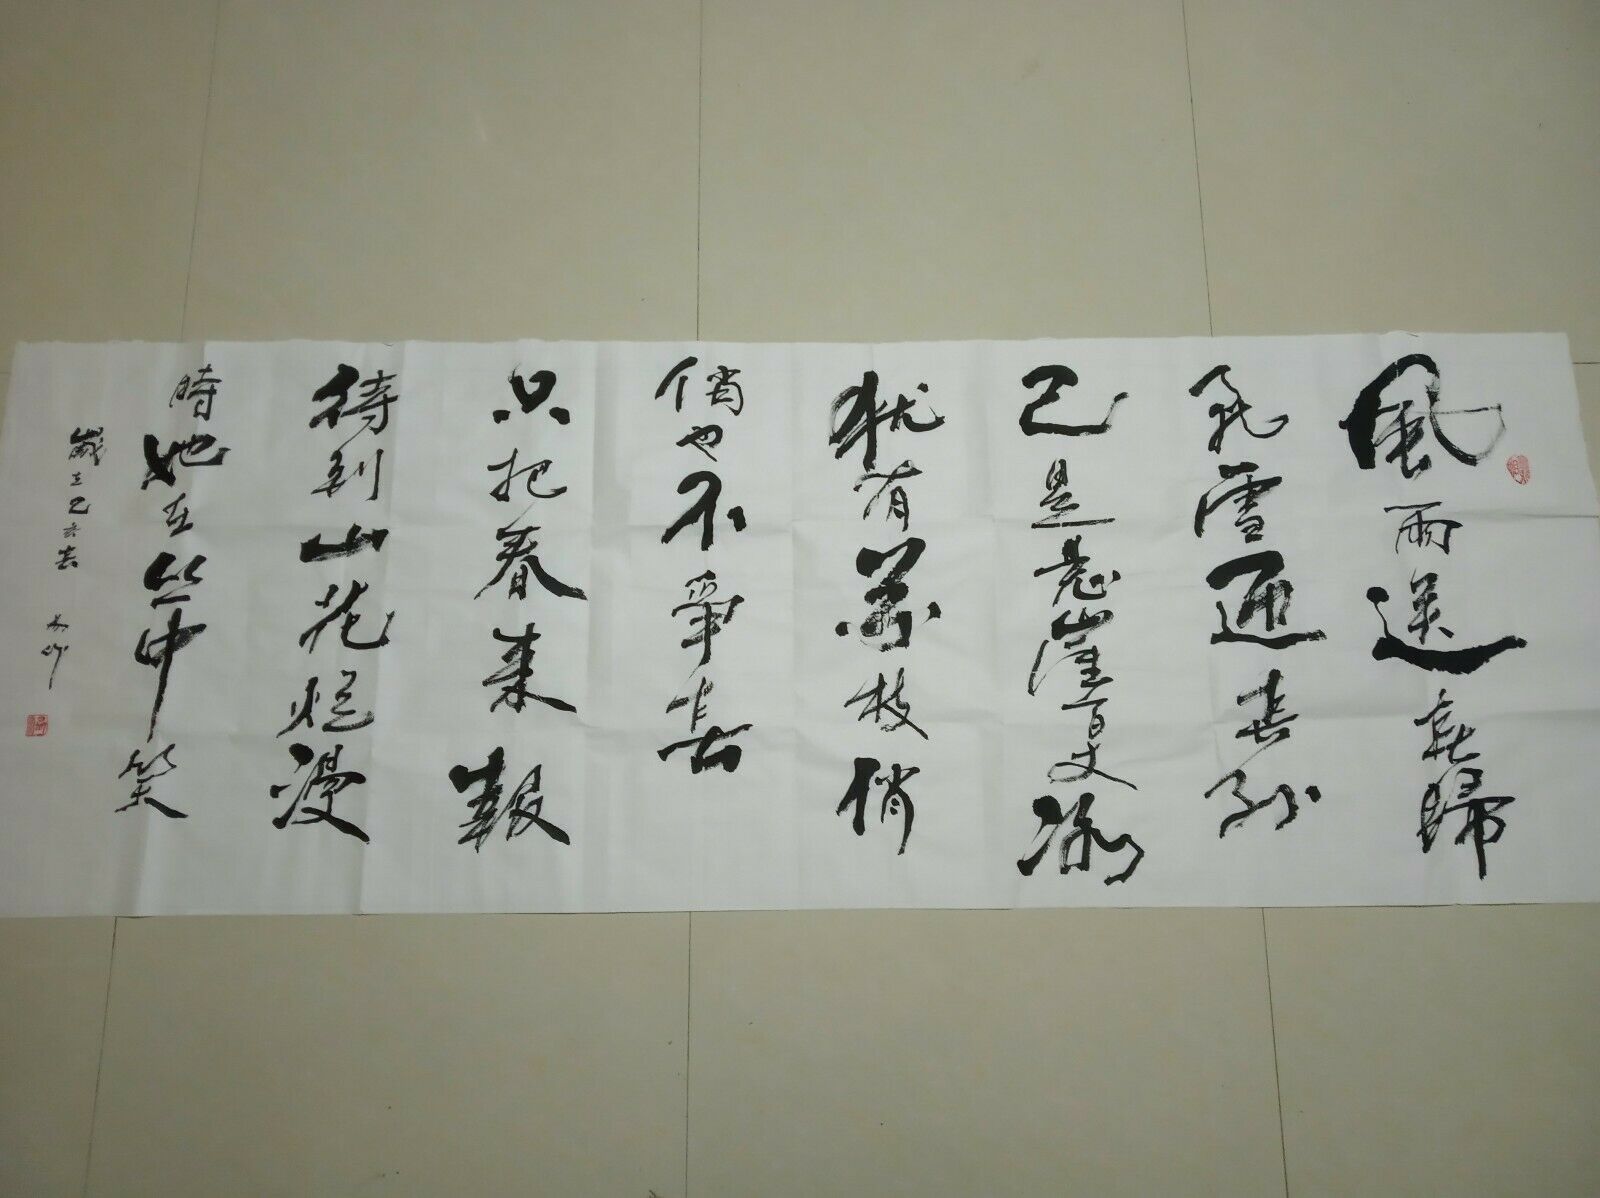 風雨送春歸
飛雪迎春到
已是懸崖百丈冰
猶有花枝俏
俏也不爭春
只把春来報
待到山花爛漫
時她在叢中笑
歲在己亥春